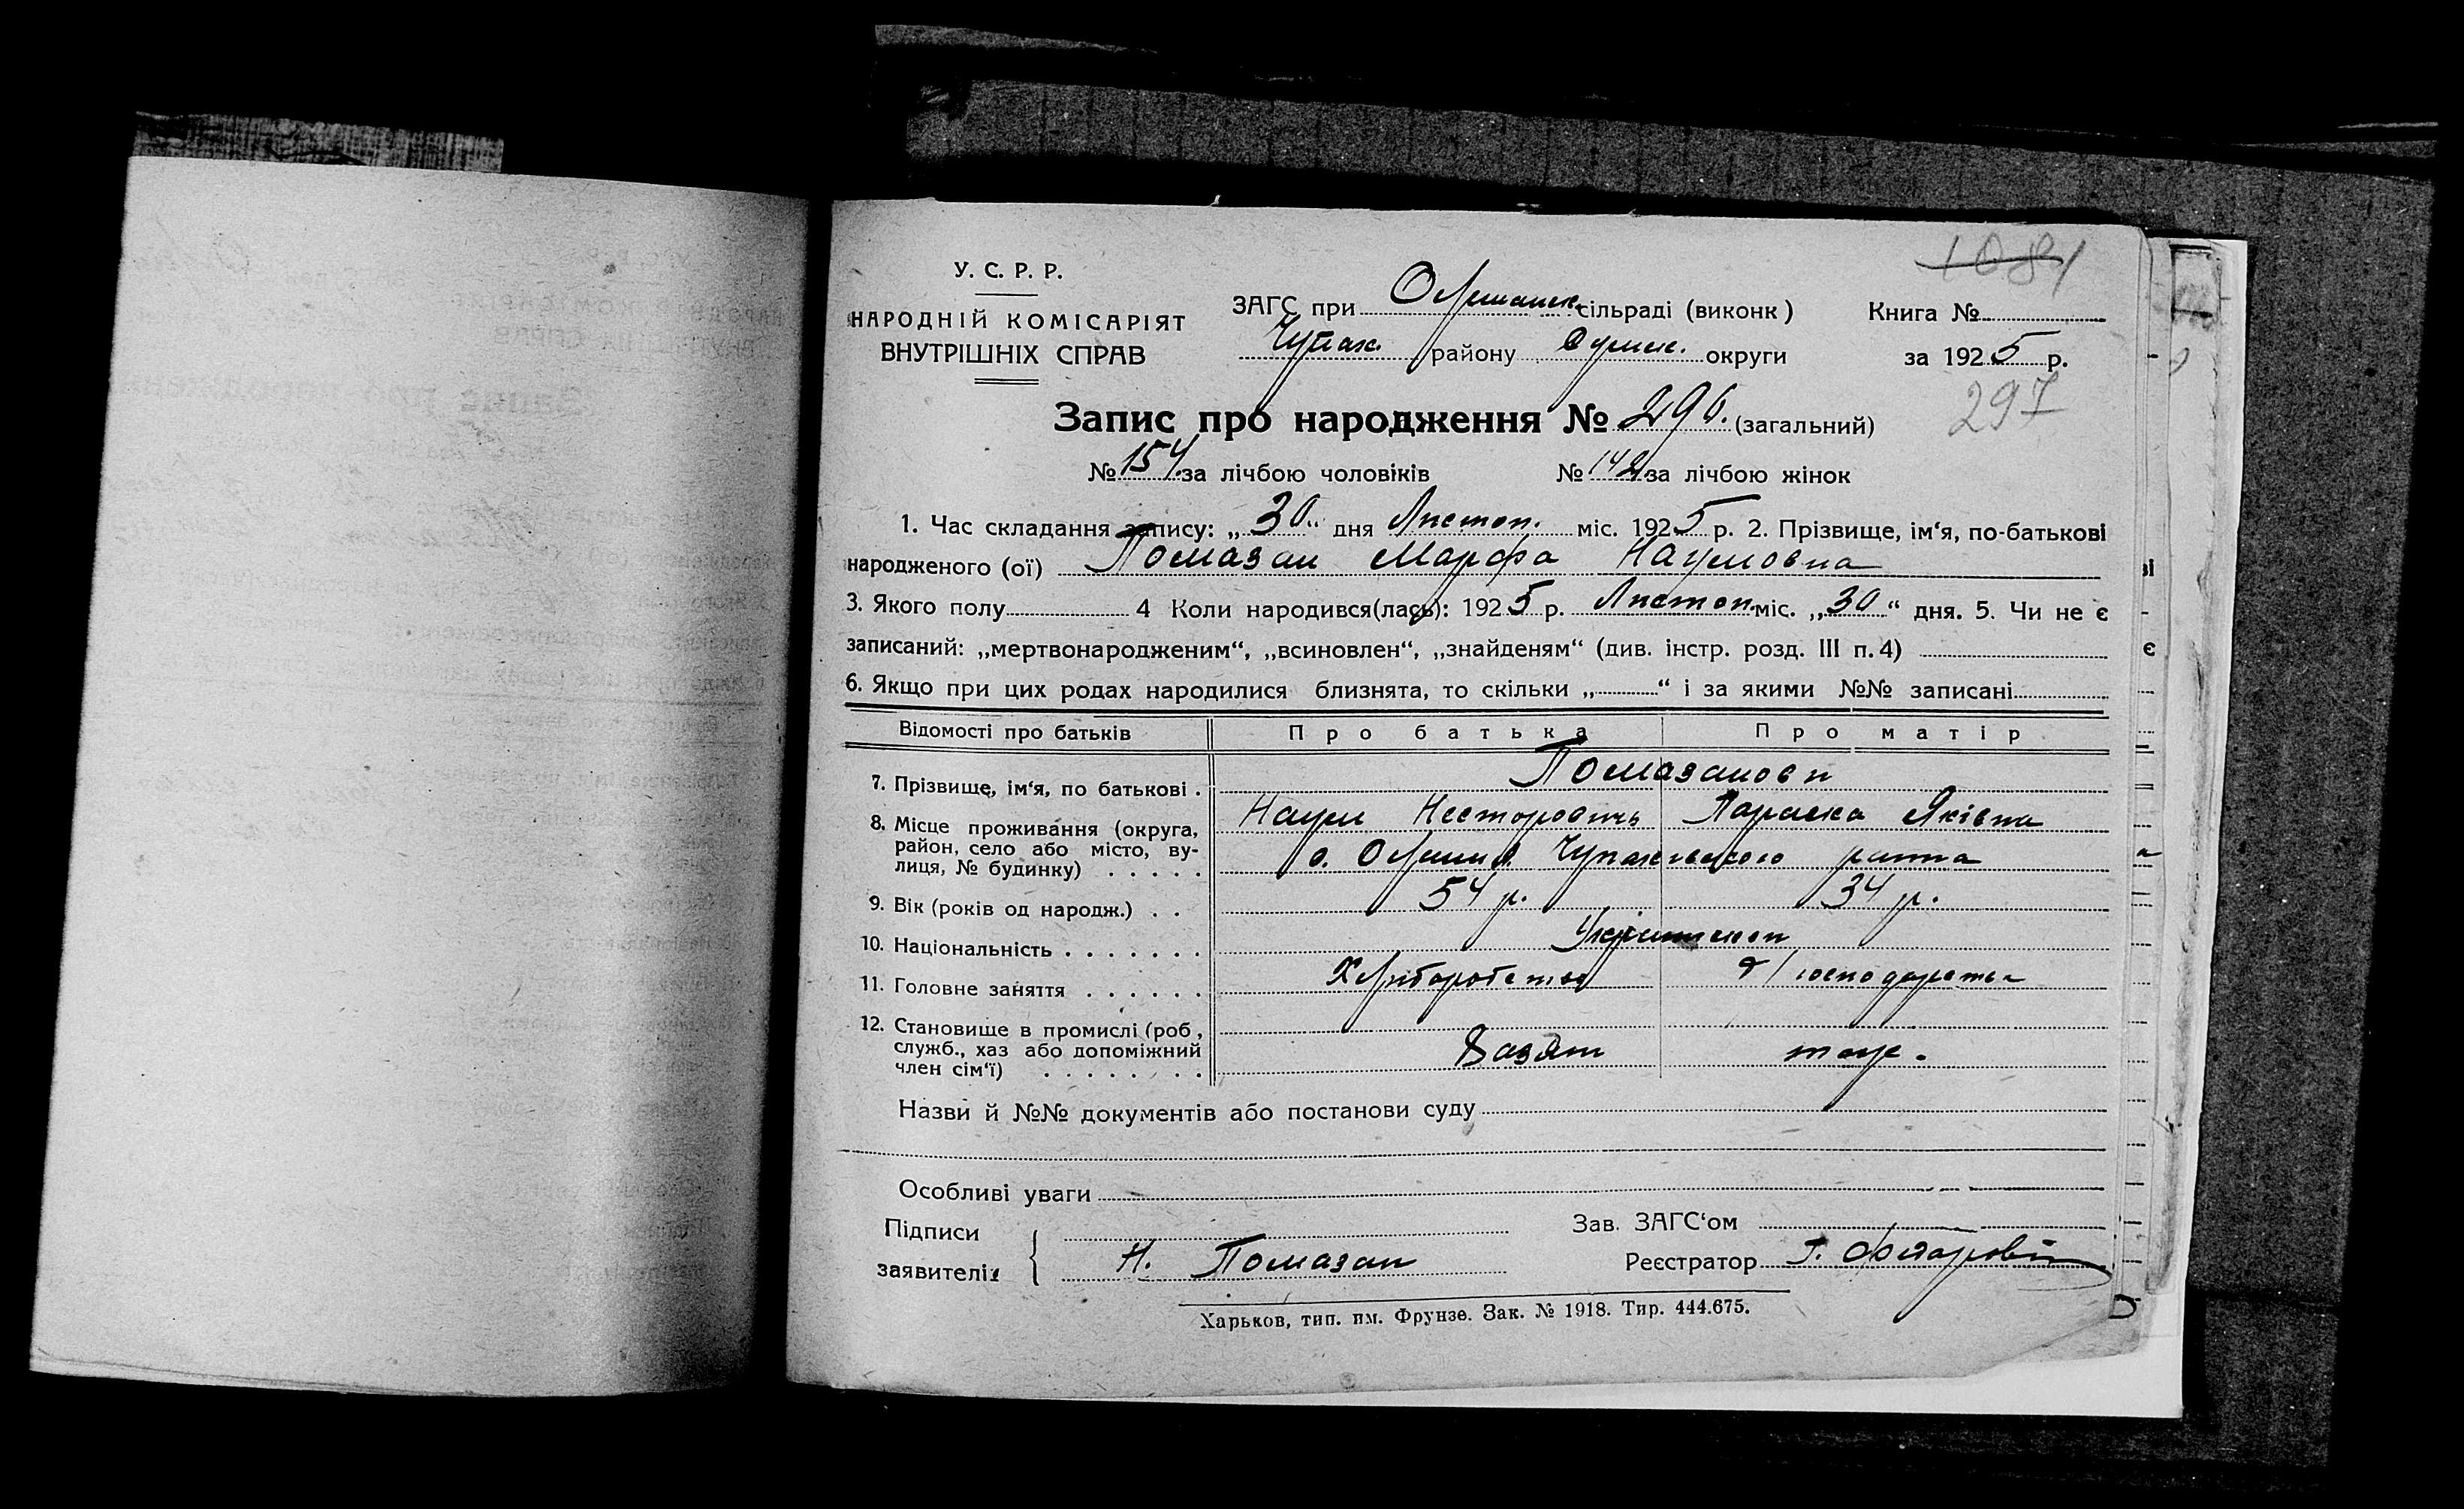 1081
У. С. Р. Р.
НАРОДНІЙ КОМІСАРІЯТ
ВНУТРІШНІХ СПРАВ
ЗАГС при Олешанск. сільраді (виконк)
Чупах. району Сумск. округи
Книга №
за 1925 р.
297
Запис про народження № 296. (загальний)
№ 154. за лічбою чоловіків № 142 за лічбою жінок
1. Час складання запису: „30“ дня Листоп. міс. 1925 р. 2. Прізвище, ім‘я, по-батькові
народженого (ої) Помазан Марфа Наумовна
3. Якого полу 4 Коли народився(лась): 1925 р. Листоп. міс. „30“ дня. 5. Чи не є
записаний: „мертвонародженим“, „всиновлен“, „знайденям“ (див. інстр. розд. III п. 4)
6. Якщо при цих родах народилися близнята, то скільки „ “ і за якими №№ записані
Відомості про батьків Про батька Про матір
7. Прізвище, ім‘я, по батькові . Помазанови
Наум Несторовичь Параска Яківна
8. Місце проживання (округа,
район, село або місто, ву-
лиця, № будинку) . . . . . с. Олешня Чупахівського района
9. Вік (років од народж.) . . 54 р. 34 р.
10. Національність . . . . . . . Українскоп
11. Головне заняття . . . . . . Хліборобство д/господарства
12. Становище в промислі (роб,
служб., хаз або допоміжний
член сім‘ї) . . . . . . . . Хазяїн тож.
Назви й №№ документів або постанови суду
Особливі уваги
Підписи
заявителів
Н. Помазан
Зав. ЗАГС‘ом
Реєстратор
Харьков, тип. им. Фрунзе. Зак. № 1918. Тир. 444.675.